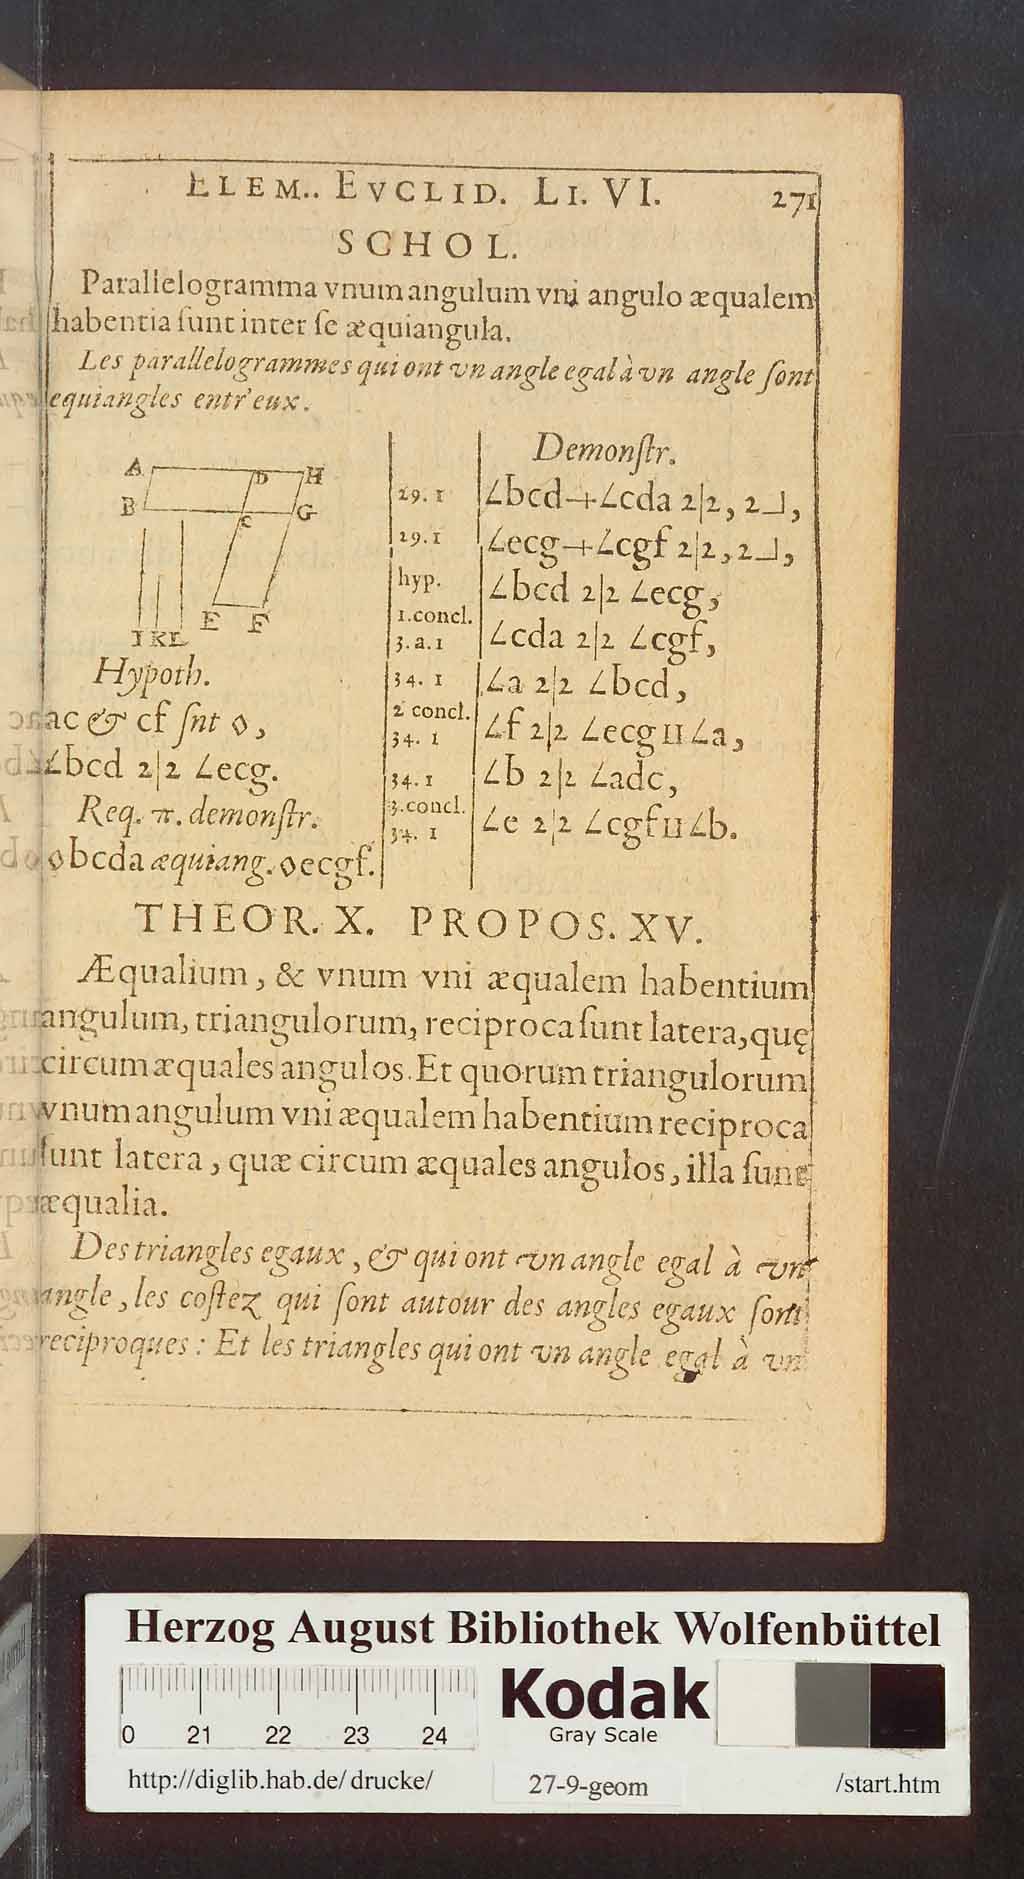 ELEM.. EVCLID. LI. VI. 271
SCHOL.
Parallelogramma vnum angulum vni angulo æqualem
habentia ſunt inter ſe æquiangula.
Les parallelogrammes qui ont vn angle egal à vn angle ſont
equiangles entr'eux.
A D H
B C G
E F
I K L
Hypoth.
ac & cf ſnt ◊,
∠bcd 2|2 ∠ecg.
Req. π. demonſtr.
◊bcda æquiang. ◊ecgf.
Demonſtr.
29. 1 ∠bcd+∠cda 2|2, 2⅃,
29. 1 ∠ecg+∠cgf 2|2, 2⅃,
hyp. ∠bcd 2|2 ∠ecg,
1. concl.
3. a. 1 ∠cda 2|2 ∠cgf,
34. 1 ∠a 2|2 ∠bcd,
2 concl.
34. 1 ∠f 2|2 ∠ecg II ∠a,
34. 1 ∠b 2|2 ∠adc,
3. concl.
34. 1 ∠e 2|2 ∠cgf II ∠b.
THEOR. X. PROPOS. XV.
Æqualium, & vnum vni æqualem habentium
angulum, triangulorum, reciproca ſunt latera, quę
circum æquales angulos. Et quorum triangulorum
vnum angulum vni æqualem habentium reciproca
ſunt latera, quæ circum æquales angulos, illa ſunt
æqualia.
Des triangles egaux, & qui ont vn angle egal à vn
angle, les coſtez qui ſont autour des angles egaux ſont
reciproques : Et les triangles qui ont vn angle egal à vn
Herzog August Bibliothek Wolfenbüttel
0 21 22 23 24
Kodak
Gray Scale
http://diglib.hab.de/drucke/ 27-9-geom /start.htm